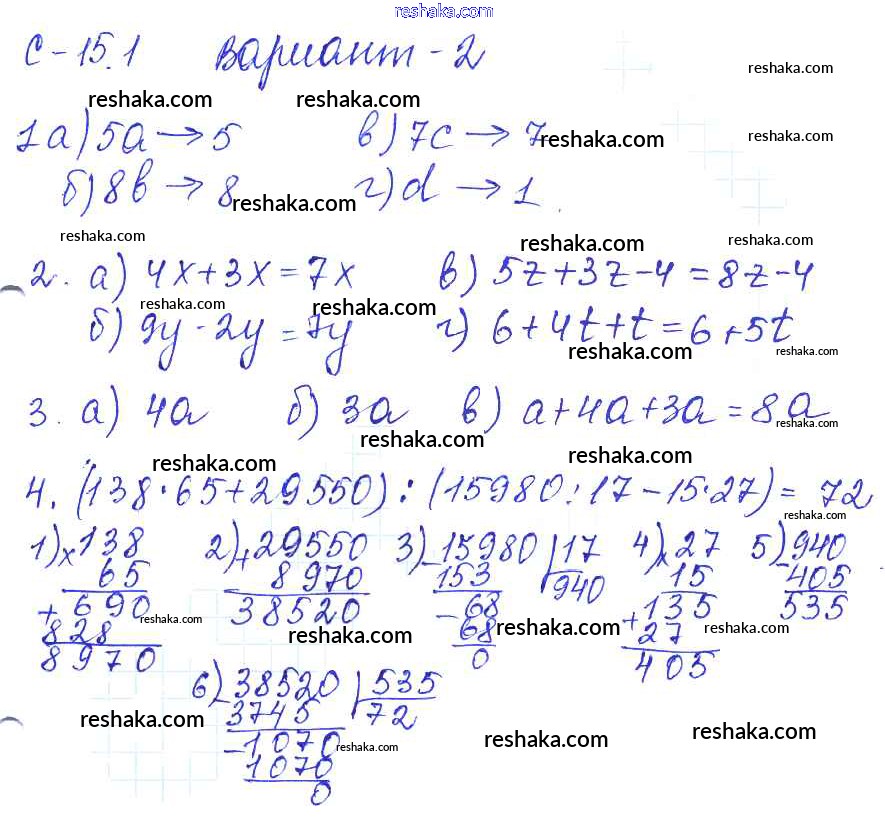 reshaka.com
С-15.1 Вариант-2
reshaka.com
reshaka.com reshaka.com
1 а) 5a → 5 в) 7c → 7
reshaka.com reshaka.com
б) 8b → 8 г) d → 1
reshaka.com
reshaka.com reshaka.com reshaka.com
2. а) 4x+3x=7x в) 5z+3z-4=8z-4
reshaka.com reshaka.com
б) 9y-2y=7y г) 6+4t+t=6+5t
reshaka.com reshaka.com
3. а) 4a б) 3a в) a+4a+3a=8a
reshaka.com
reshaka.com
reshaka.com reshaka.com
4. (138·65+29550):(15980:17-15·27)= 72
reshaka.com
1) ×138 2) +29550 3) -15980 | 17 4) ×27 5) -940
65 8970 153 940 15 405
+690 38520 -68 +135 535
828 68 27
8970 0 405
reshaka.com reshaka.com reshaka.com reshaka.com
6) -38520 | 535
3745 72
-1070
1070
0
reshaka.com reshaka.com reshaka.com reshaka.com